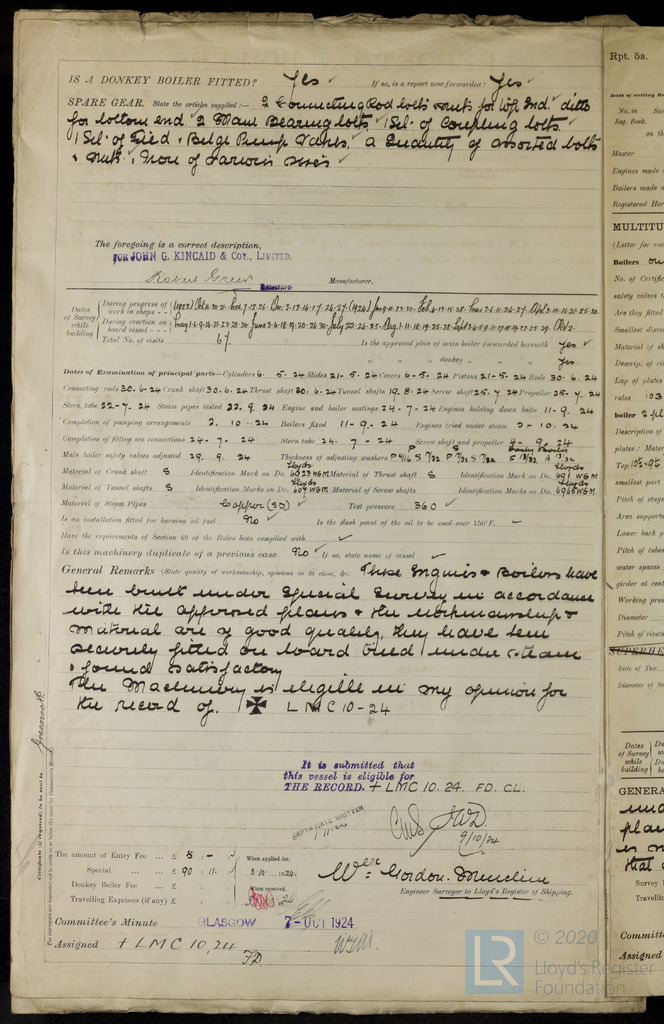 IS A DONKEY BOILER FITTED? Yes ✓ If so, is a report now forwarded? Yes ✓
SPARE GEAR. State the articles supplied:— 2 Connecting Rod bolts & nuts for top End. ditto
for bottom end 2 Main Bearing bolts, 1 Set of Coupling bolts
1 Set of Feed & Bilge Pump Valves. a Quantity of assorted bolts
& nuts. & Iron of various sizes ✓
The foregoing is a correct description,
FOR JOHN G. KINCAID & COY., LIMITED.
Robert Green Manufacturer.
Dates of Survey while building
During progress of work in shops - -
During erection on board vessel - - -
Total No. of visits 67
Is the approved plan of main boiler forwarded herewith Yes ✓
" " " donkey " " Yes
Dates of Examination of principal parts—Cylinders 6. 5. 24 Slides 21-5-24 Covers 6. 5. 24 Pistons 21-5-24 Rods 30. 6. 24
Connecting rods 30. 6. 24 Crank shaft 30. 6. 24 Thrust shaft 30. 6. 24 Tunnel shafts 19. 8. 24 Screw shaft 25. 7. 24 Propeller 25. 7. 24
Stern tube 22-7. 24 Steam pipes tested 22. 9. 24 Engine and boiler seatings 24. 7. 24 Engines holding down bolts 11. 9. 24
Completion of pumping arrangements 2. 10. 24 Boilers fixed 11-9. 24 Engines tried under steam 2-10. 24
Completion of fitting sea connections 24-7. 24 Stern tube 24. 7-24 Screw shaft and propeller 4-9. 24
Main boiler safety valves adjusted 29. 9. 24 Thickness of adjusting washers
Material of Crank shaft S Identification Mark on Do. Lloyds 6923 WGM Material of Thrust shaft S Identification Mark on Do. Lloyds 691 WGM
Material of Tunnel shafts S Identification Marks on Do. Lloyds 604 WGM Material of Screw shafts Identification Marks on Do. Lloyds 6965 WGM
Material of Steam Pipes Copper (SD) ✓ Test pressure 360 ✓
Is an installation fitted for burning oil fuel No ✓ Is the flash point of the oil to be used over 150°F. —
Have the requirements of Section 49 of the Rules been complied with ✓
Is this machinery duplicate of a previous case No ✓ If so, state name of vessel ✓
General Remarks (State quality of workmanship, opinions as to class, &c. These Engines & Boilers have
been built under Special Survey in accordance
with the approved plans & the workmanship &
material are of good quality, they have been
securely fitted on board tried under steam
& found satisfactory
The Machinery is eligible in my opinion for
the record of. ✠ LMC 10-24
It is submitted that
this vessel is eligible for
THE RECORD. + LMC 10. 24. FD. CL.
CERTIFICATE WRITTEN
1-11-24
9/10/24
The amount of Entry Fee .. £ 5 : - : When applied for,
Special ... £ 90 : 11 : 3. 10. 1924.
Donkey Boiler Fee ... £ : : When received,
Travelling Expenses (if any) £ : :
Wm Gordon
Engineer Surveyor to Lloyd's Register of Shipping.
Committee's Minute GLASGOW 7-OCT 1924
Assigned + LMC 10,24
FD.
Greenock
Certificate (if required) to be sent to
LR © 2020
Lloyd's Register
Foundation
Rpt. 5a.
No. in
Reg. Book.
Master
Engines made
Boilers made
Registered Hor
MULTITU
(Letter for rec
Boilers
No. of Certific
safety valves
Are they fitted
Smallest dista
Material of sh
Descrip. of ri
Lap of plates
rules 103
boiler
Description of
plates: Mater
smallest part
Pitch of stays
Area supporte
Lower back p
Pitch of tubes
water spaces
girder at cent
Working pres
Diameter
Pitch of rivets
SUPERHE
Date of Test
Diameter of Sa
Dates
of Survey
while
building
GENERA
Survey
Travelli
Committ
Assigned